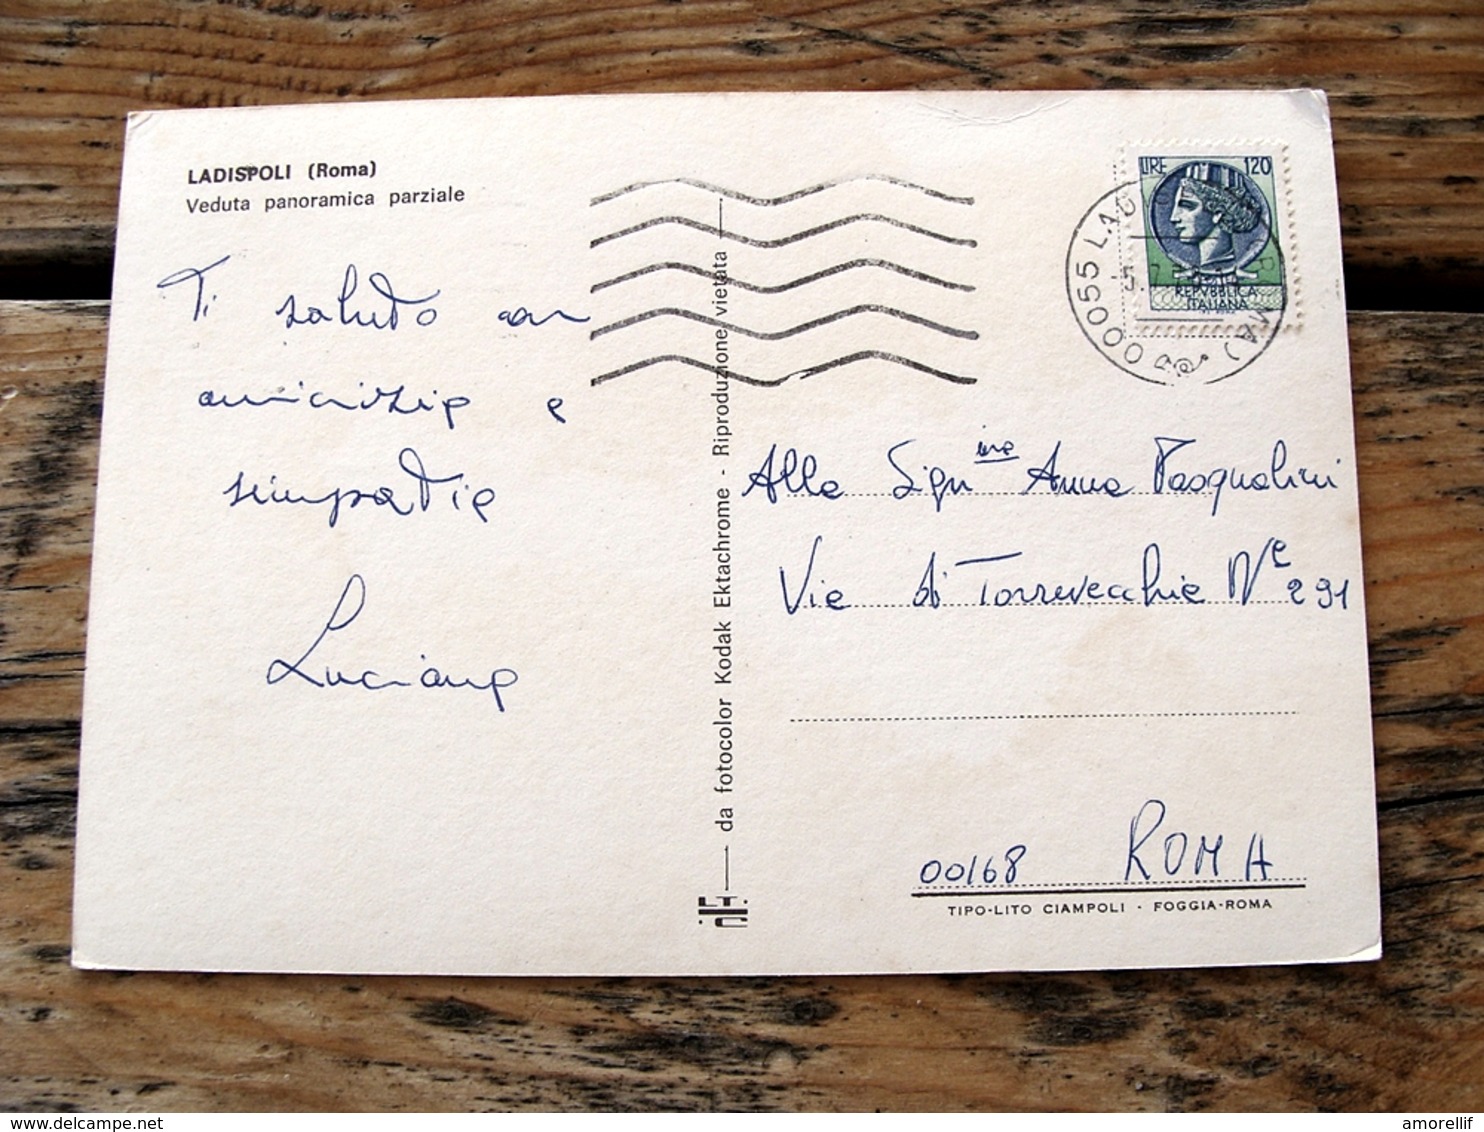 LADISPOLI (Roma)
Veduta panoramica parziale
Ti saluto con
amicizia e
simpatia
Luciana
da fotocolor Kodak Ektachrome - Riproduzione vietata
LIRE 120
REPVBBLICA
ITALIANA
00055 LAD
Alla Sign.ina Anna Pasqualini
Via di Torrevecchia N° 291
00168 ROMA
TIPO-LITO CIAMPOLI - FOGGIA-ROMA
delcampe.net
amorellif